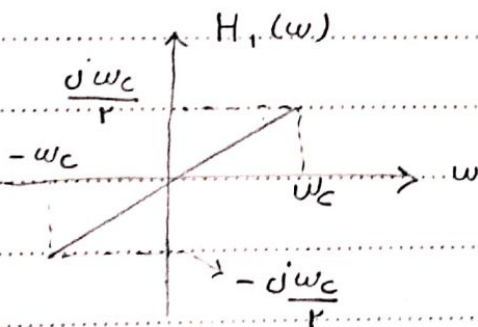 H₁(ω)
jω_c/۲
-ω_c
ω_c
ω
-jω_c/۲